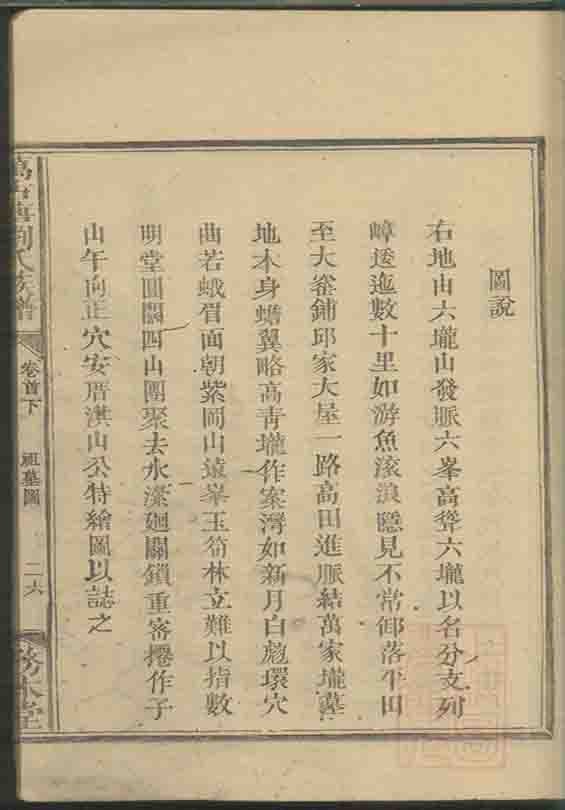 圖說
右地由六壠山發脈六峯高聳六壠以名分支列
嶂逶迤數十里如游魚滚浪隱見不常卸落平田
至大窰鋪邱家大屋一路高田進脈結萬家壠墓
地本身蟾翼略高青壠作案灣如新月白彪環穴
曲若蛾眉面朝紫岡山遠峯玉筍林立難以指數
明堂圓闊四山團聚去水瀠廻關鎖重密捲作子
山午向正穴安厝洪山公特繪圖以誌之
劉氏族譜
卷首下
祖墓圖
二六
務本堂